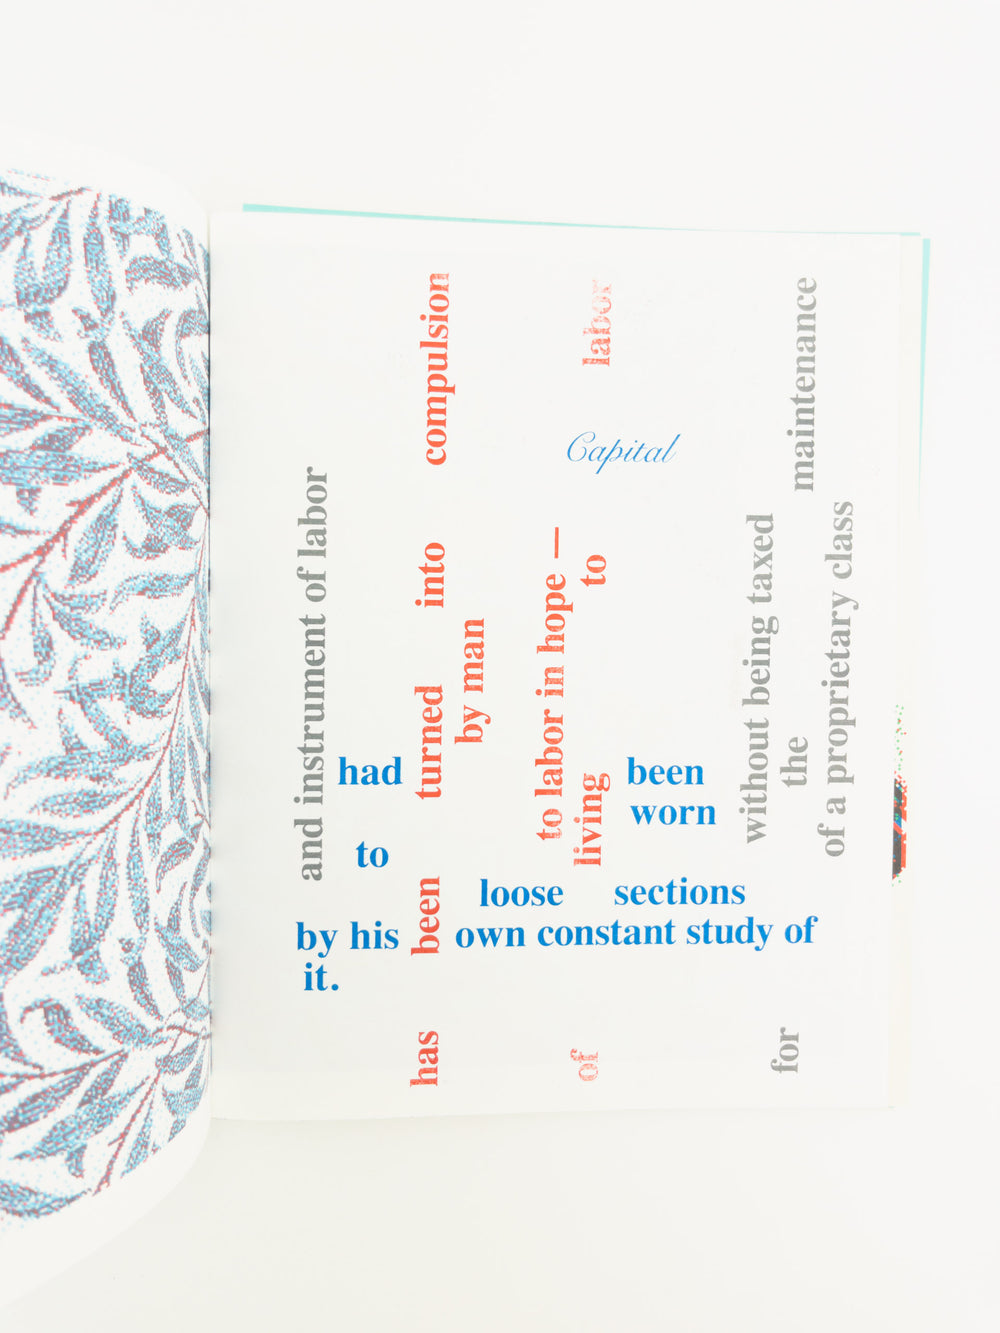 Capital
had been
worn
to
loose sections
by his own constant study of
it.
and instrument of labor
has been turned into compulsion
by man
to labor in hope —
of living to labor
without being taxed
for the maintenance
of a proprietary class